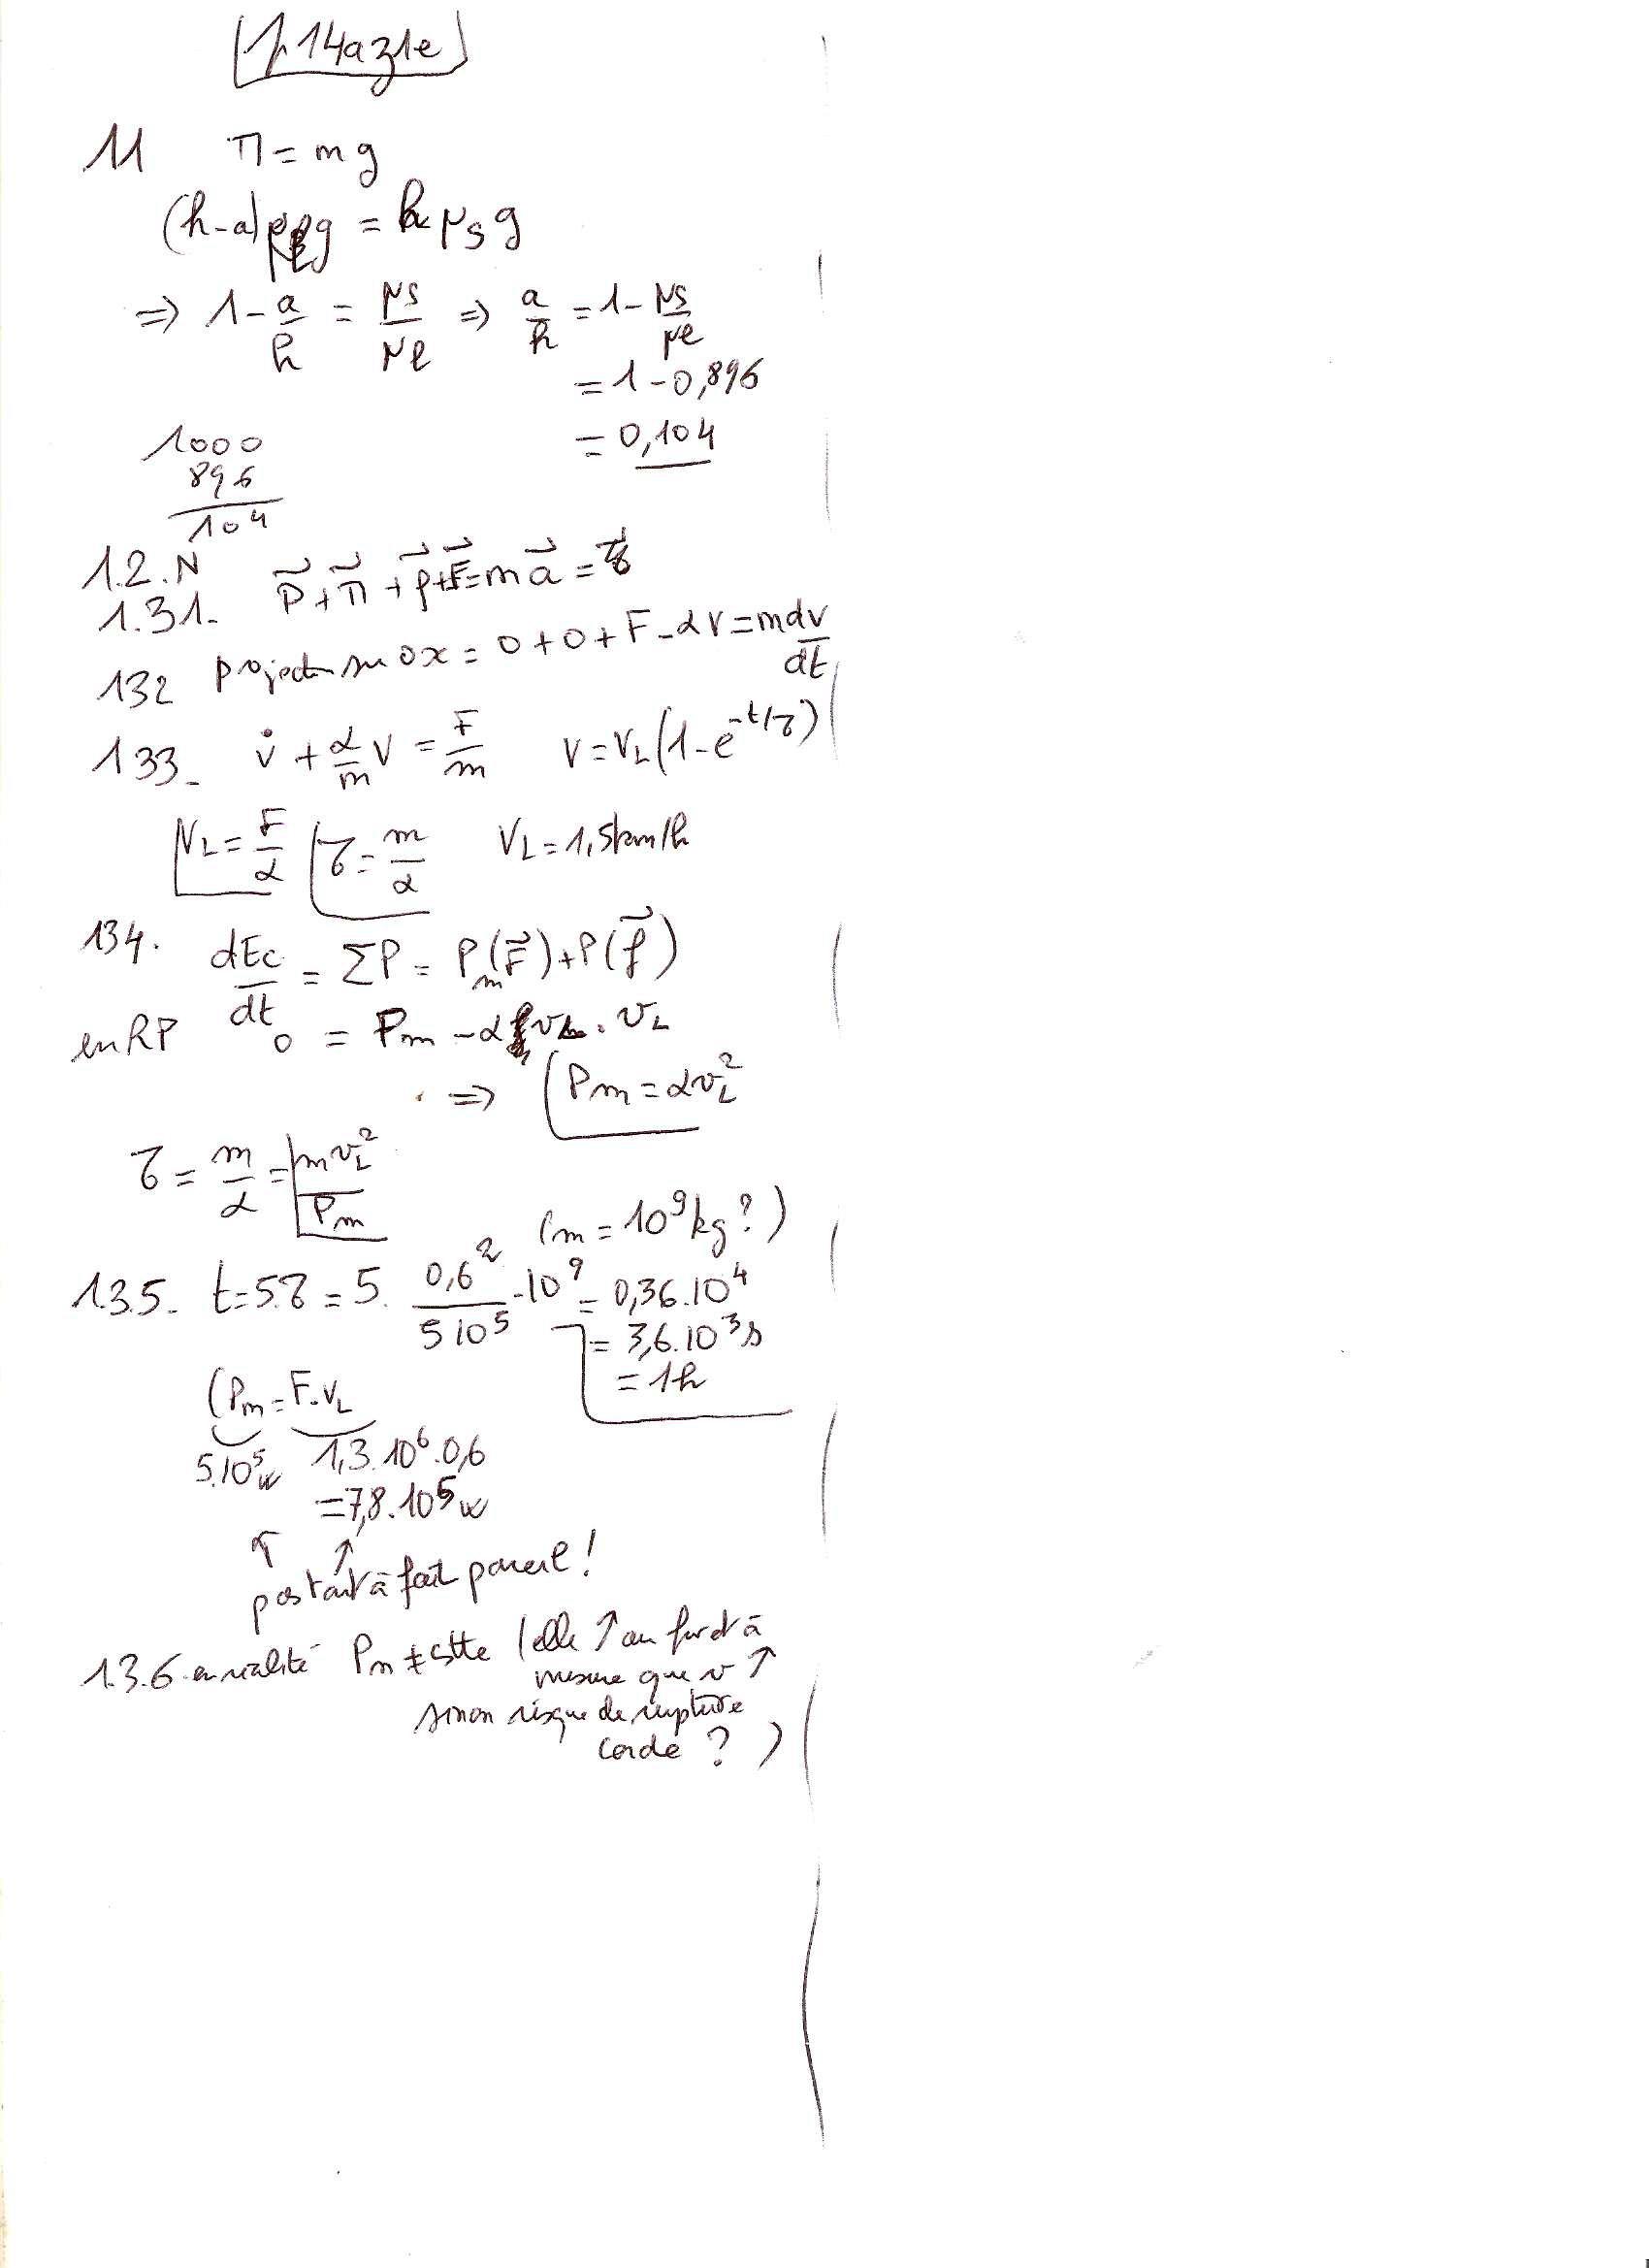 p14az1e
11 Π = mg
(h-a)μℓg = hμsg
⇒ 1 - a/h = μs/μℓ ⇒ a/h = 1 - μs/μℓ
= 1 - 0,896
= 0,104
1000
896
104
1.2.N
1.31. P⃗ + Π⃗ + f⃗ + F⃗ = m a⃗ =
132 projection sur ox = 0 + 0 + F - αv = m dv/dt
133_ v̇ + α/m v = F/m v = vL(1 - e^-t/τ)
vL = F/α τ = m/α vL = 1,5km/h
134. dEc/dt = ΣP = Pm(F⃗) + P(f⃗)
en RP 0 = Pm - α vL . vL
⇒ Pm = αvL²
τ = m/α = mvL²/Pm
(m = 10⁹kg ?)
1.3.5_ t = 5τ = 5. 0,6²/5 10⁵ .10⁹ = 0,36.10⁴
= 3,6.10³s
= 1h
(Pm = F.vL
5.10⁵w 1,3.10⁶.0,6
= 7,8.10⁵w
↑ ↑
pas tout à fait pareil !
1.3.6 en réalité Pm ≠ cstte (elle ↑ au fur et à
mesure que v ↑
sinon risque de rupture
corde ? )